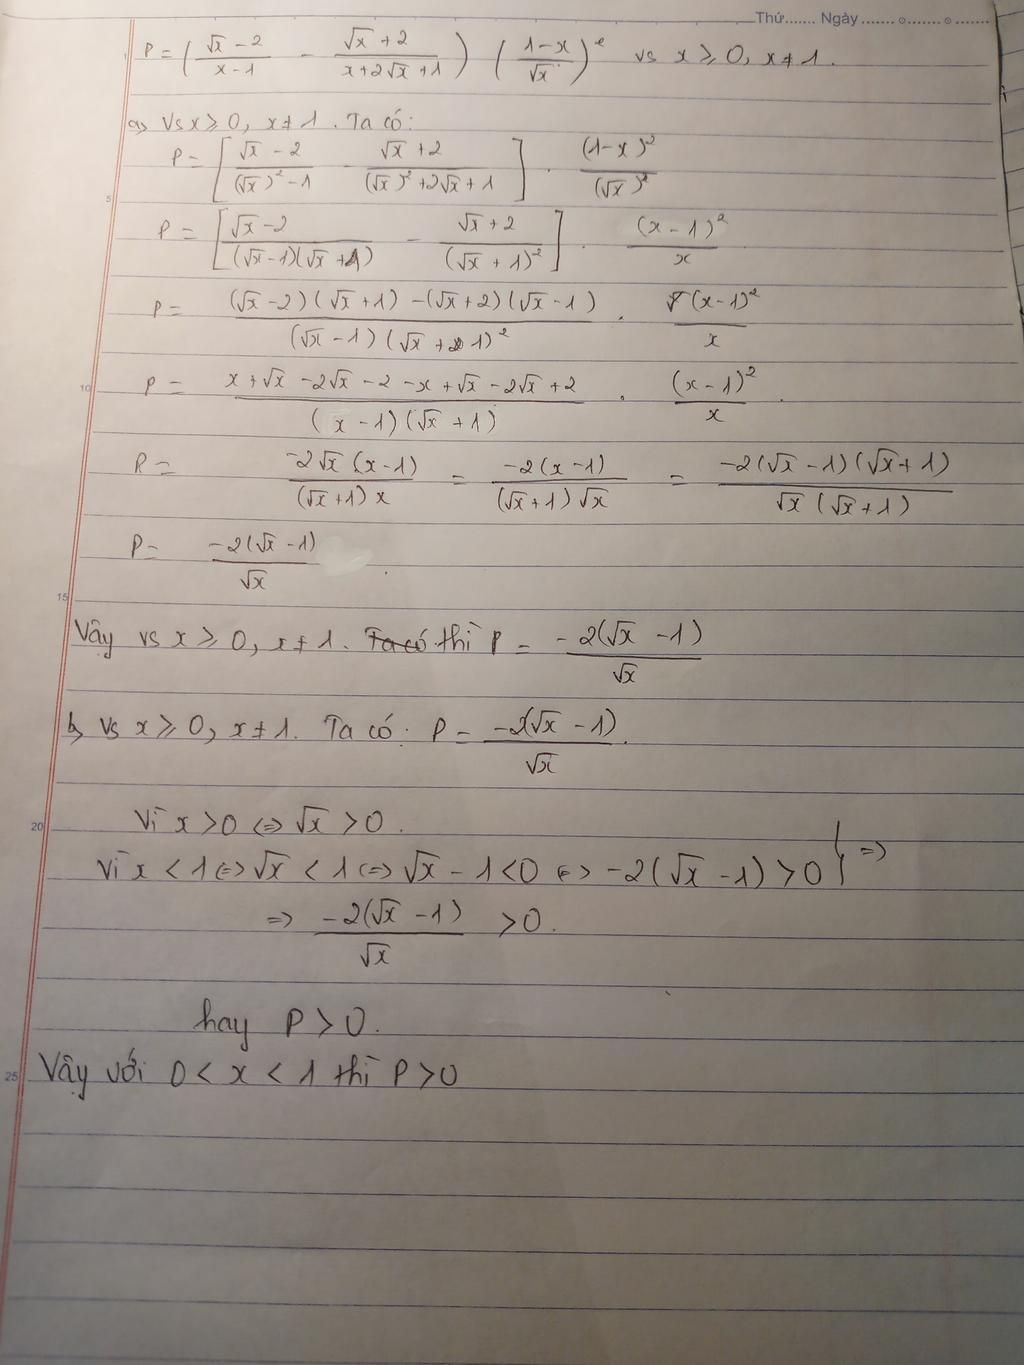 Thứ....... Ngày ....... ........ .......
P = ( (√x - 2)/(x - 1) - (√x + 2)/(x + 2√x + 1) ) ( (1 - x)/√x )² vs x ⩾ 0, x ≠ 1.
a, Vs x ⩾ 0, x ≠ 1. Ta có:
P = [ (√x - 2)/((√x)² - 1) - (√x + 2)/((√x)² + 2√x + 1) ] . (1 - x)²/(√x)²
5
P = [ (√x - 2)/((√x - 1)(√x + 1)) - (√x + 2)/(√x + 1)² ] . (x - 1)²/x
P = ((√x - 2)(√x + 1) - (√x + 2)(√x - 1))/((√x - 1)(√x + 1)²) . (x - 1)²/x
10
P = (x + √x - 2√x - 2 - x + √x - 2√x + 2)/((x - 1)(√x + 1)) . (x - 1)²/x.
P = (-2√x (x - 1))/((√x + 1) x) = (-2(x - 1))/((√x + 1)√x) = (-2(√x - 1)(√x + 1))/(√x (√x + 1))
P = (-2(√x - 1))/√x.
15
Vậy vs x ⩾ 0, x ≠ 1. Ta có thì P = (-2(√x - 1))/√x
b, Vs x ⩾ 0, x ≠ 1. Ta có: P = (-2(√x - 1))/√x.
20
Vì x > 0 <=> √x > 0.
Vì x < 1 <=> √x < 1 <=> √x - 1 < 0 <=> -2(√x - 1) > 0 } =>
=> (-2(√x - 1))/√x > 0.
hay P > 0.
25
Vậy với 0 < x < 1 thì P > 0